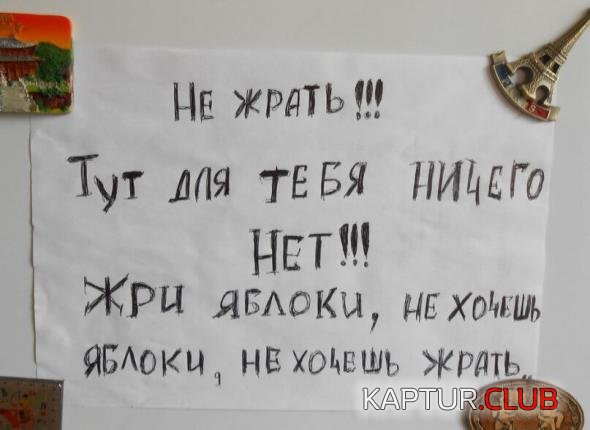 НЕ ЖРАТЬ!!!
ТУТ ДЛЯ ТЕБЯ НИЧЕГО
НЕТ!!!
ЖРИ ЯБЛОКИ, НЕ ХОЧЕШЬ
ЯБЛОКИ, НЕ ХОЧЕШЬ ЖРАТЬ..
KAPTUR.CLUB